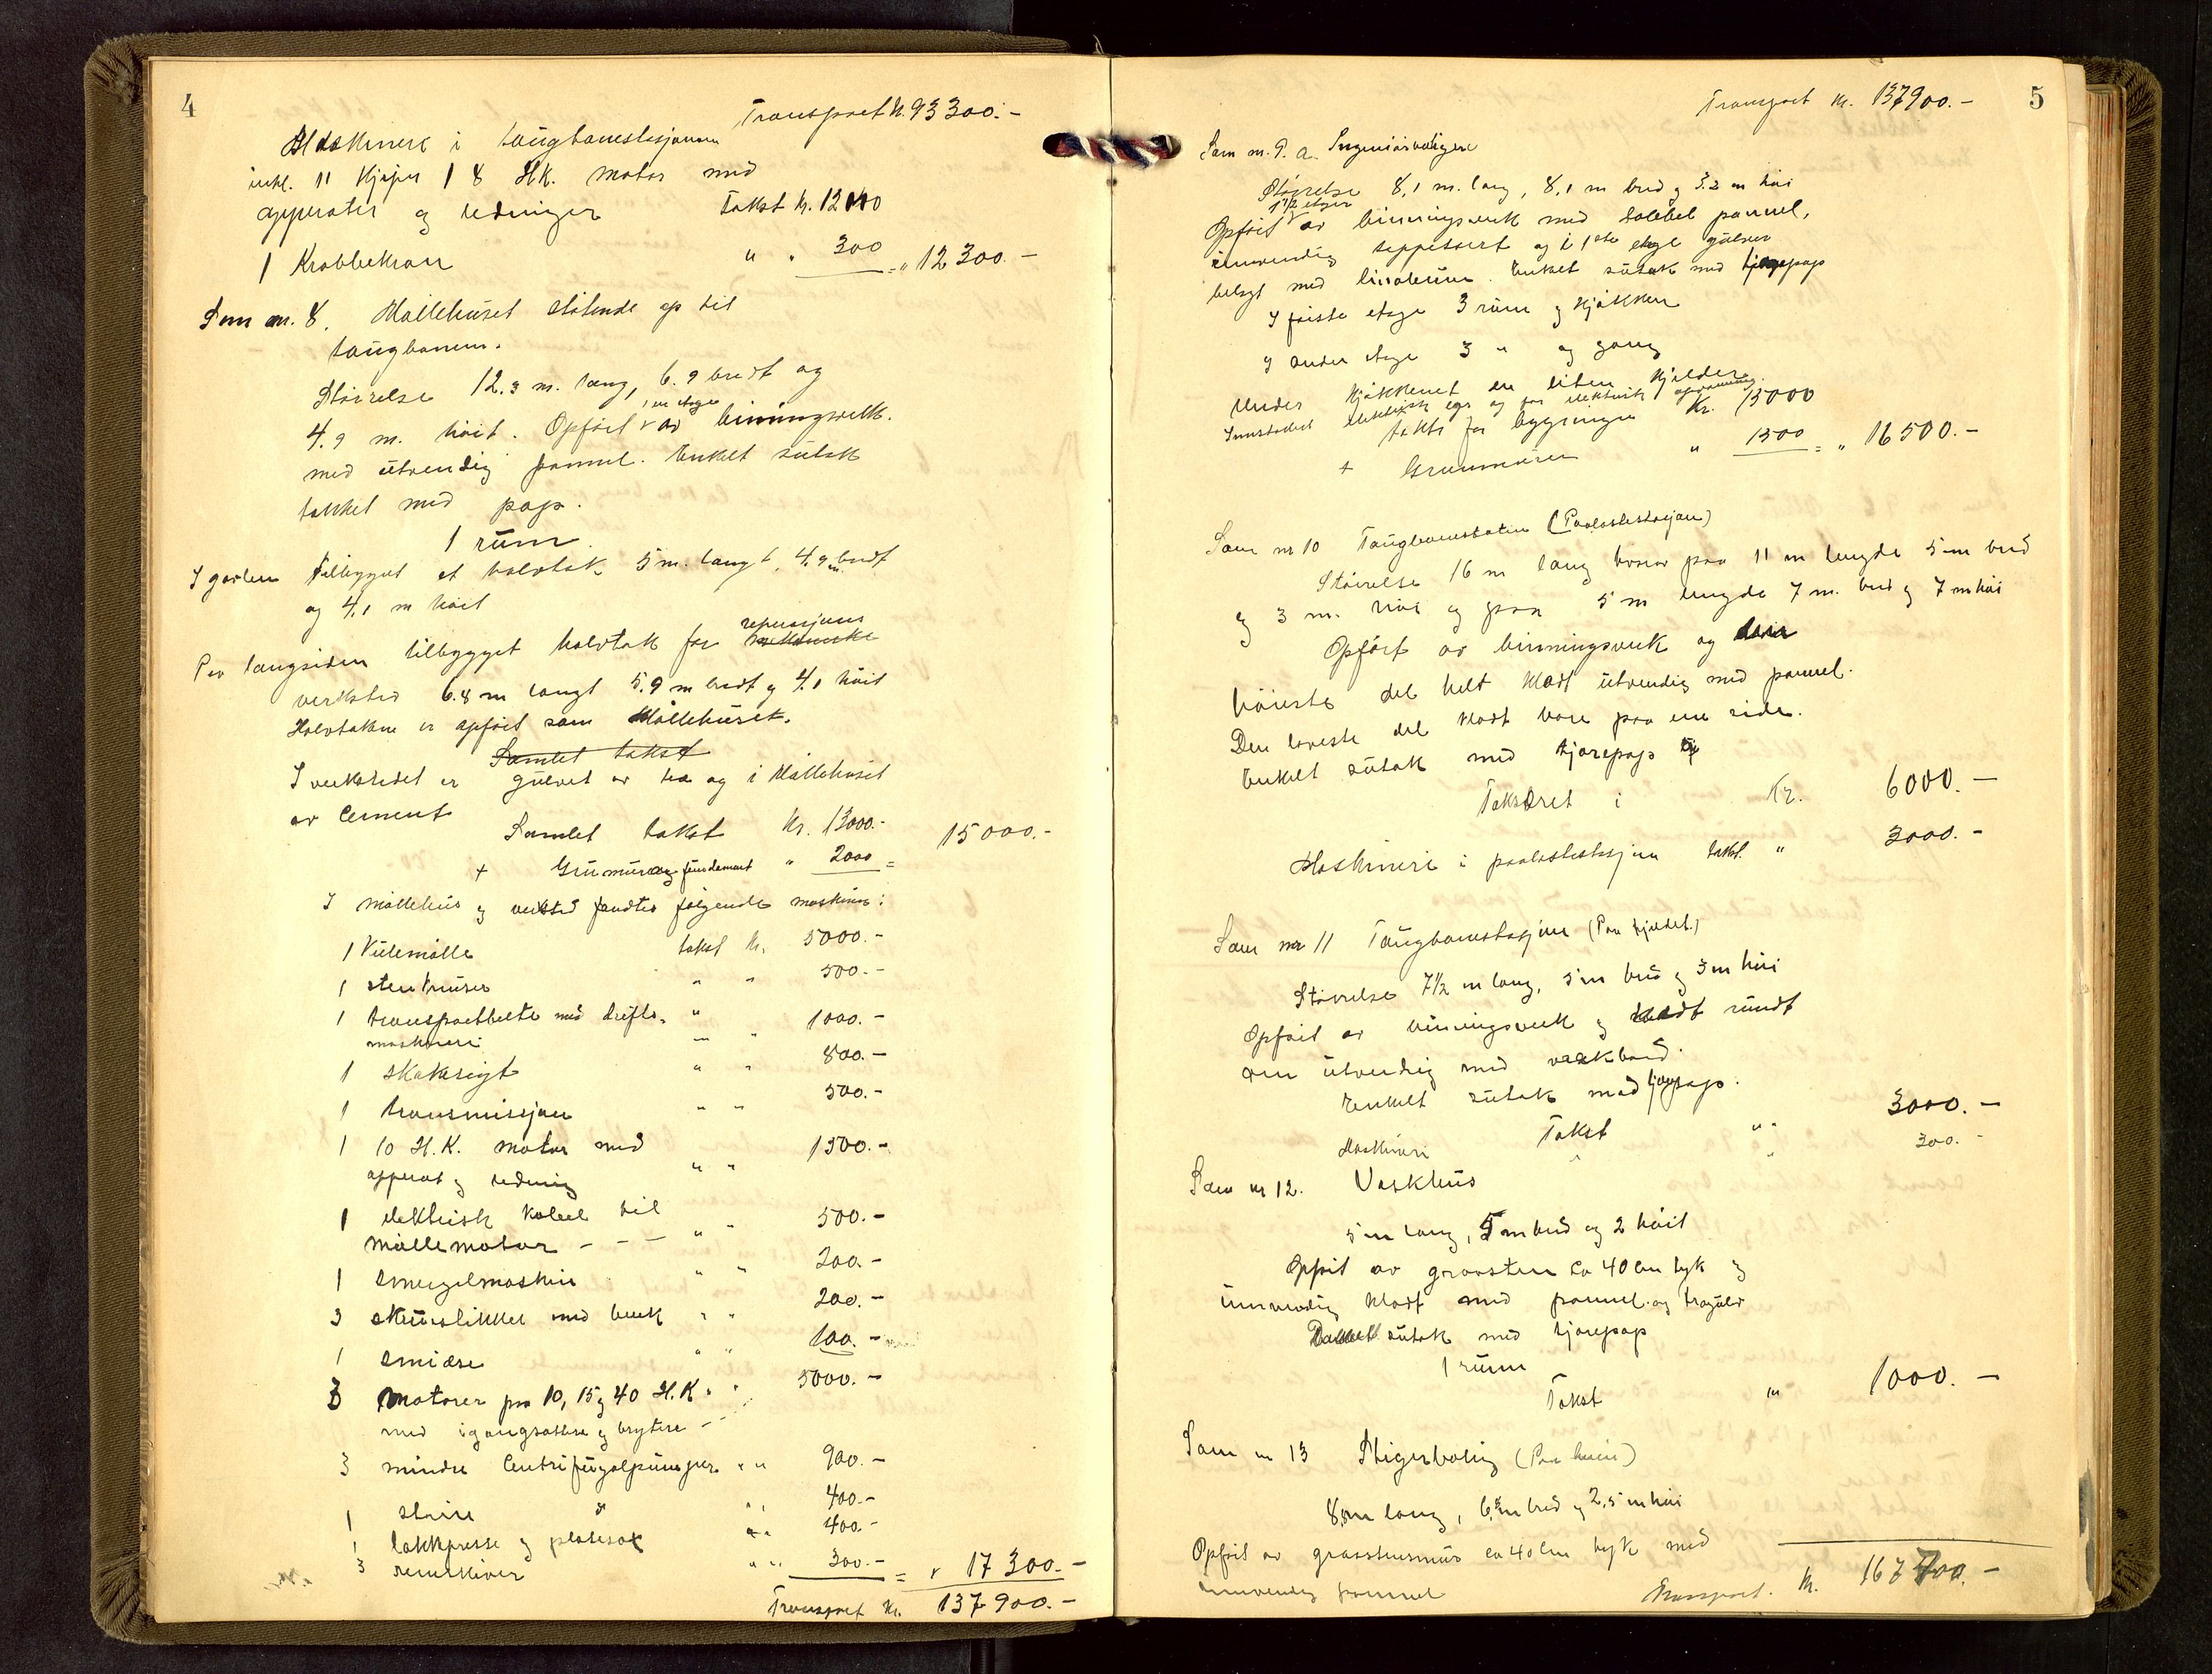 4
Transport k. 93 300.-
Maskineri i taugbanestasjonen
inkl. 11 kjøper 1 8 H.K. motor med
apparater og ledninger Takst k. 12000
1 Krabbekran " " 300 = " 12 300.-
Sam nr. 8. Møllehuset støtende op til
taugbanen.
Størrelse 12.3 m. lang, 6.9 bredt og
1 en etage
4.9 m. høit. Opført v av binningsverk.
med utvendig pannel. Enkelt sutak
tækket med papp.
1 rum.
I gavlen tilbygget et halvtak 5 m. langt, 4.9 m bredt
og 4.1 m høit
Paa langsiden tilbygget halvtak for mekaniske reperasjons
verksted 6.8 m langt 5.9 m bredt og 4.1 høit
Halvtakene er opført som Møllehuset.
Samlet takst
I verkstedet er gulvet av træ og i Møllehuset
av Cement
Samlet takst Kr. 13000.-
+ Grumur og fundament " 2000 = 15 000.-
I møllehus og verksted fandtes følgende maskiner:
1 Kulemølle takst kr. 5000.-
1 stenknuser " " 500.-
1 transportbelte med drifts- "
maskineri " 1000.-
1 skakesigt " " 800.-
1 transmissjon " " 500.-
1 10 H.K. motor med
apparat og ledning " " 1500.-
1 elektrisk kabel til
møllemotor - - - " " 500.-
1 smergelmaskin " " 200.-
3 skruestikker med benk " " 200.-
1 smiæse " " 100.-
3 motorer paa 10, 15 og 40 H.K. " " 5000.-
med igangsættere og brytere -
3 mindre Centrifugalpumper " " 900.-
1 større " " " 400.-
1 lakkpresse og platesax " " 400.-
3 remskiver " " 300.- = " 17 300.-
Transport Kr. 137 900.-
5
Transport Kr. 137900.-
Sam nr. 9. a. Ingeniørboligen
Størrelse 8,1 m. lang, 8,1 m bred og 5.2 m høi
1 1/2 etager
Opført v av binningsverk med dobbel pannel,
innvendig teppetsert og i 1ste etage gulver
belagt med linoleum. Enkelt sutak med tjærepapp
I første etage 3 rum og kjøkken
I anden etage 3 " og gang
Under kjøkkenet en liten kjelder.
Innstadert elektrisk lys og for elektrisk opvarmning
takst for bygningen Kr. 15000
+ Grunnmuren " 1500 = " 16 500.-
Sam nr 10 Taugbanestasjon (Paalastestasjon)
Størrelse 16 m lang hvorav paa 11 m lengde 5 m bred
og 3 m. høi og paa 5 m lengde 7 m. bred og 7 m høi
Opført av binningsverk og den
høieste del helt klædt utvendig med pannel.
Den laveste del klædt bare paa ene side.
Enkelt sutak med tjærepapp
Taksert i Kr. 6000.-
Maskineri i paalastestasjon takst " 3000.-
Sam nr 11 Taugbanestasjon (Paa fjeldet.)
Størrelse 7 1/2 m lang, 5 m bred og 3 m høi
Opført av binningsverk og klædt rundt
om utvendig med vrakbord.
Enkelt sutak med tjærepapp.
Takst " " 3000.-
Maskineri " " 300.-
Sam nr 12. Vaskhus
5 m lang, 5 m bred og 2 høit
Opført av graasten ca 40 cm tyk og
innvendig klædt med pannel og tregulv
Dobbelt sutak med tjærepapp
1 rum
Takst " 1000.-
Sam nr 13 Stigerbolig (Paa heien)
8,0 m lang, 6,5 m bred og 2,5 m høi
Opført av graastensmur ca 40 cm tyk med
innvendig pannel
Transport. Kr. 167 700.-